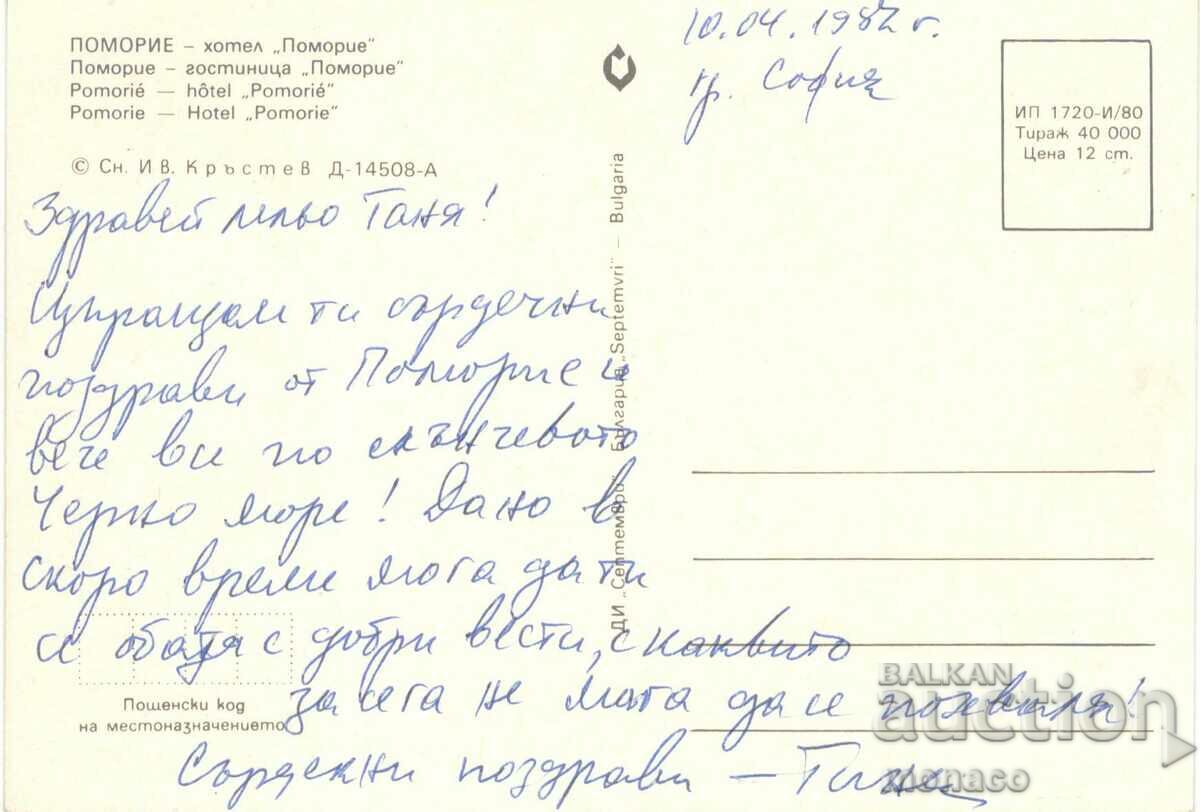 ПОМОРИЕ – хотел „Поморие"
Поморие – гостиница „Поморие"
Pomorié — hôtel „Pomorié"
Pomorie — Hotel „Pomorie"
© Сн. Ив. Кръстев Д-14508-А
10.04.1982 г.
гр. София
ИП 1720-И/80
Тираж 40 000
Цена 12 ст.
Здравей лельо Таня!
Изпращам ти сърдечни
поздрави от Поморие и
вече все по слънчевото
Черно море! Дано в
скоро време мога да ти
се обадя с добри вести, с каквито
засега не мога да се похваля!
Сърдечни поздрави –
ДИ „Септември" България „Septemvri" — Bulgaria
Пощенски код
на местоназначението
BALKAN
auction
monaco